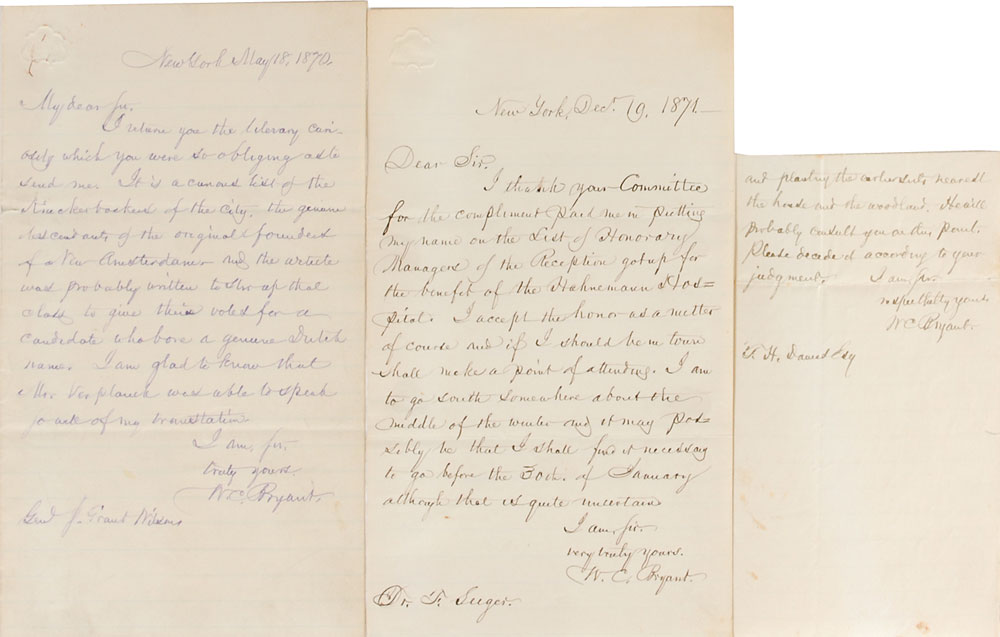 New York May 18, 1870.
My dear Sir.
I return you the literary curi-
osity which you were so obliging as to
send me. It is a curious list of the
Knickerbockers of the city, the genuine
descendants of the original founders
of New Amsterdam and the article
was probably written to stir up that
class to give their votes for a
candidate who bore a genuine Dutch
name. I am glad to know that
Mr. Verplanck was able to speak
of my translation
I am, sir,
truly yours.
W. C. Bryant.
Genl J. Grant Wilson
New York, Decr. 19, 1871—
Dear Sir.
I thank your Committee
for the compliment paid me in putting
my name on the List of Honorary
Managers of the Reception got up for
the benefit of the Hahnemann Hos=
pital. I accept the honor as a matter
of course and if I should be in town
shall make a point of attending. I am
to go south somewhere about the
middle of the winter and it may pos=
sibly be that I shall find it necessary
to go before the 30th. of January
although that is quite uncertain
I am, sir.
very truly yours.
W. C. Bryant.
Dr. F. Seeger.
and planting the earlier nearest
the house and the woodland. He will
probably consult you on this point.
Please decide it according to your
judgment.
I am, sir.
respectfully yours
W C Bryant.
H. Daniel Esq